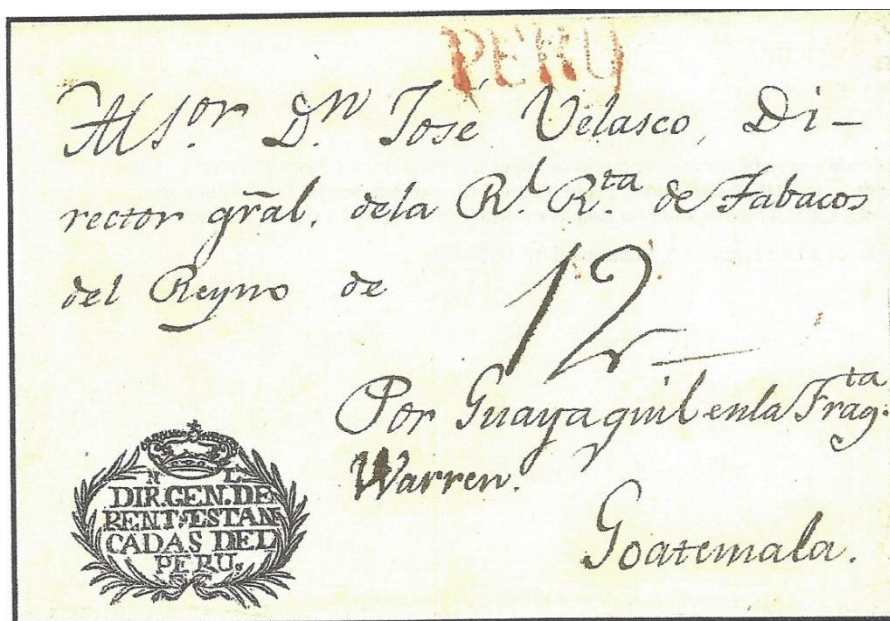 PERU
Al S.or D.n José Velasco, Di-
rector grãl. dela R.l R.ta de Tabacos
del Reyno de
12
Por Guayaquil enla Frag.ta
Warren.
Goatemala.
N L
DIR.GEN.DE
RENT.S ESTAN
CADAS DEL
PERU.